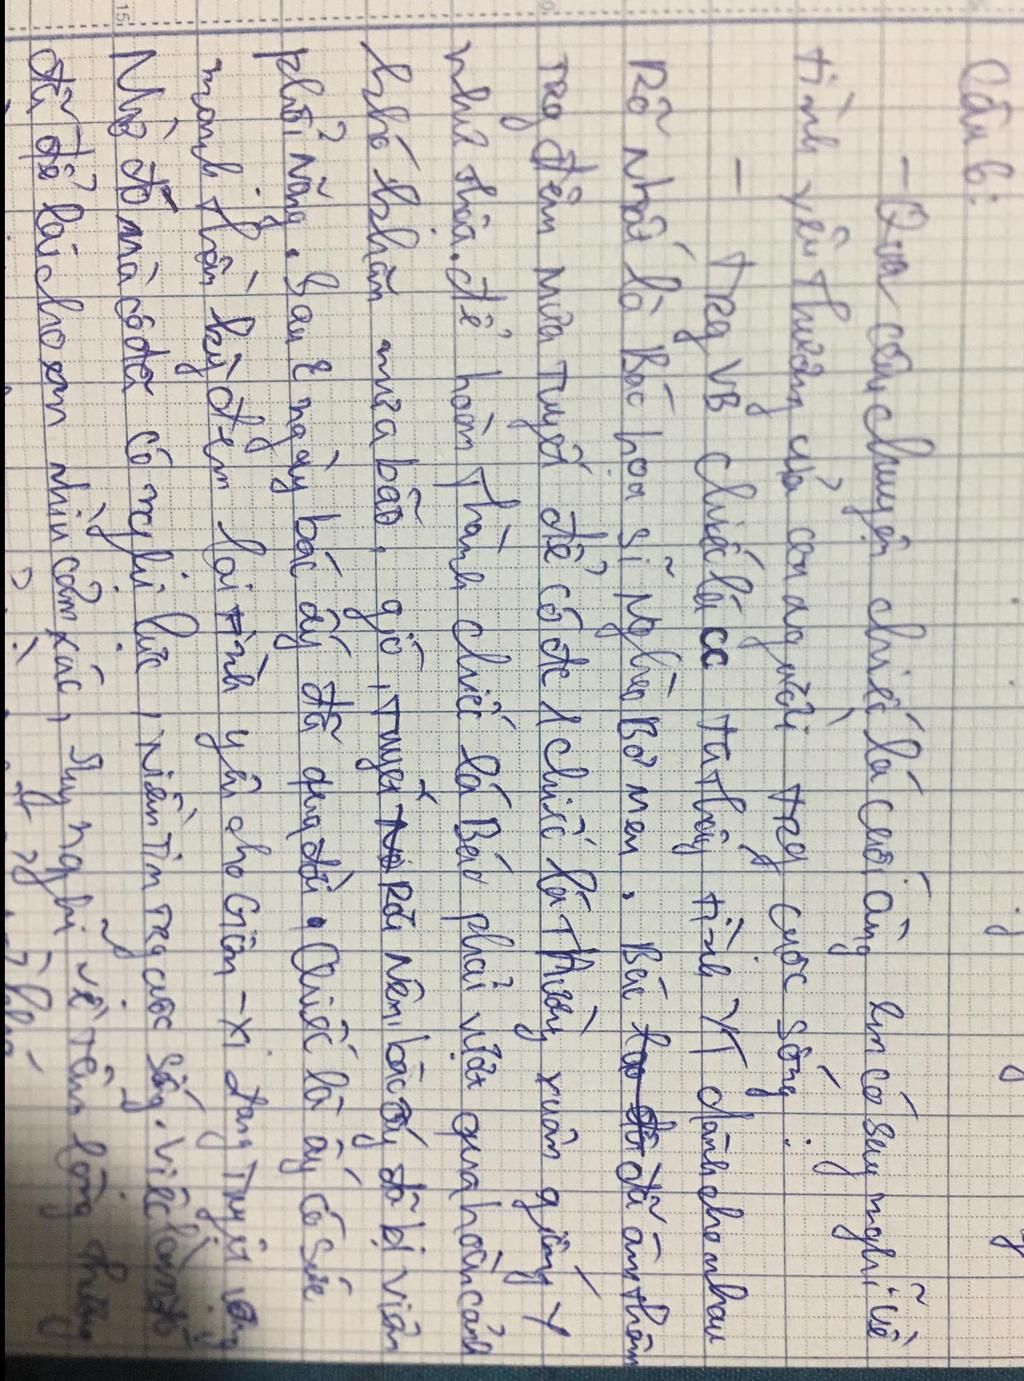 Câu b:
- Qua câu chuyện chiếc lá cuối cùng em có suy nghĩ về
tình yêu thương của con người trg cuộc sống:
- Trg VB chiếc lá cc ta thấy tình YT dành cho nhau
Rõ nhất là Bác họa sĩ nghèo Bơ men. Bác đã âm thầm
trg đêm mưa tuyết để có đc 1 chiếc lá thường xuân giống y
như thật. để hoàn thành chiếc lá Bác phải vượt qua hoàn cảnh
khó khăn mưa bão, gió, tuyết Rơi nên bác ấy đã bị viêm
phổi nặng. Sau 2 ngày bác ấy đã qua đời. Chiếc lá ấy có sức
mạnh thần kỳ đem lại tình yêu cho Giôn-xi đang tuyệt vọng
Nhờ đó mà cô đã có nghị lực, niềm tin trg cuộc sống. Việc làm đó
đã để lại cho em nhiều cảm xúc, suy nghĩ về tấm lòng thương